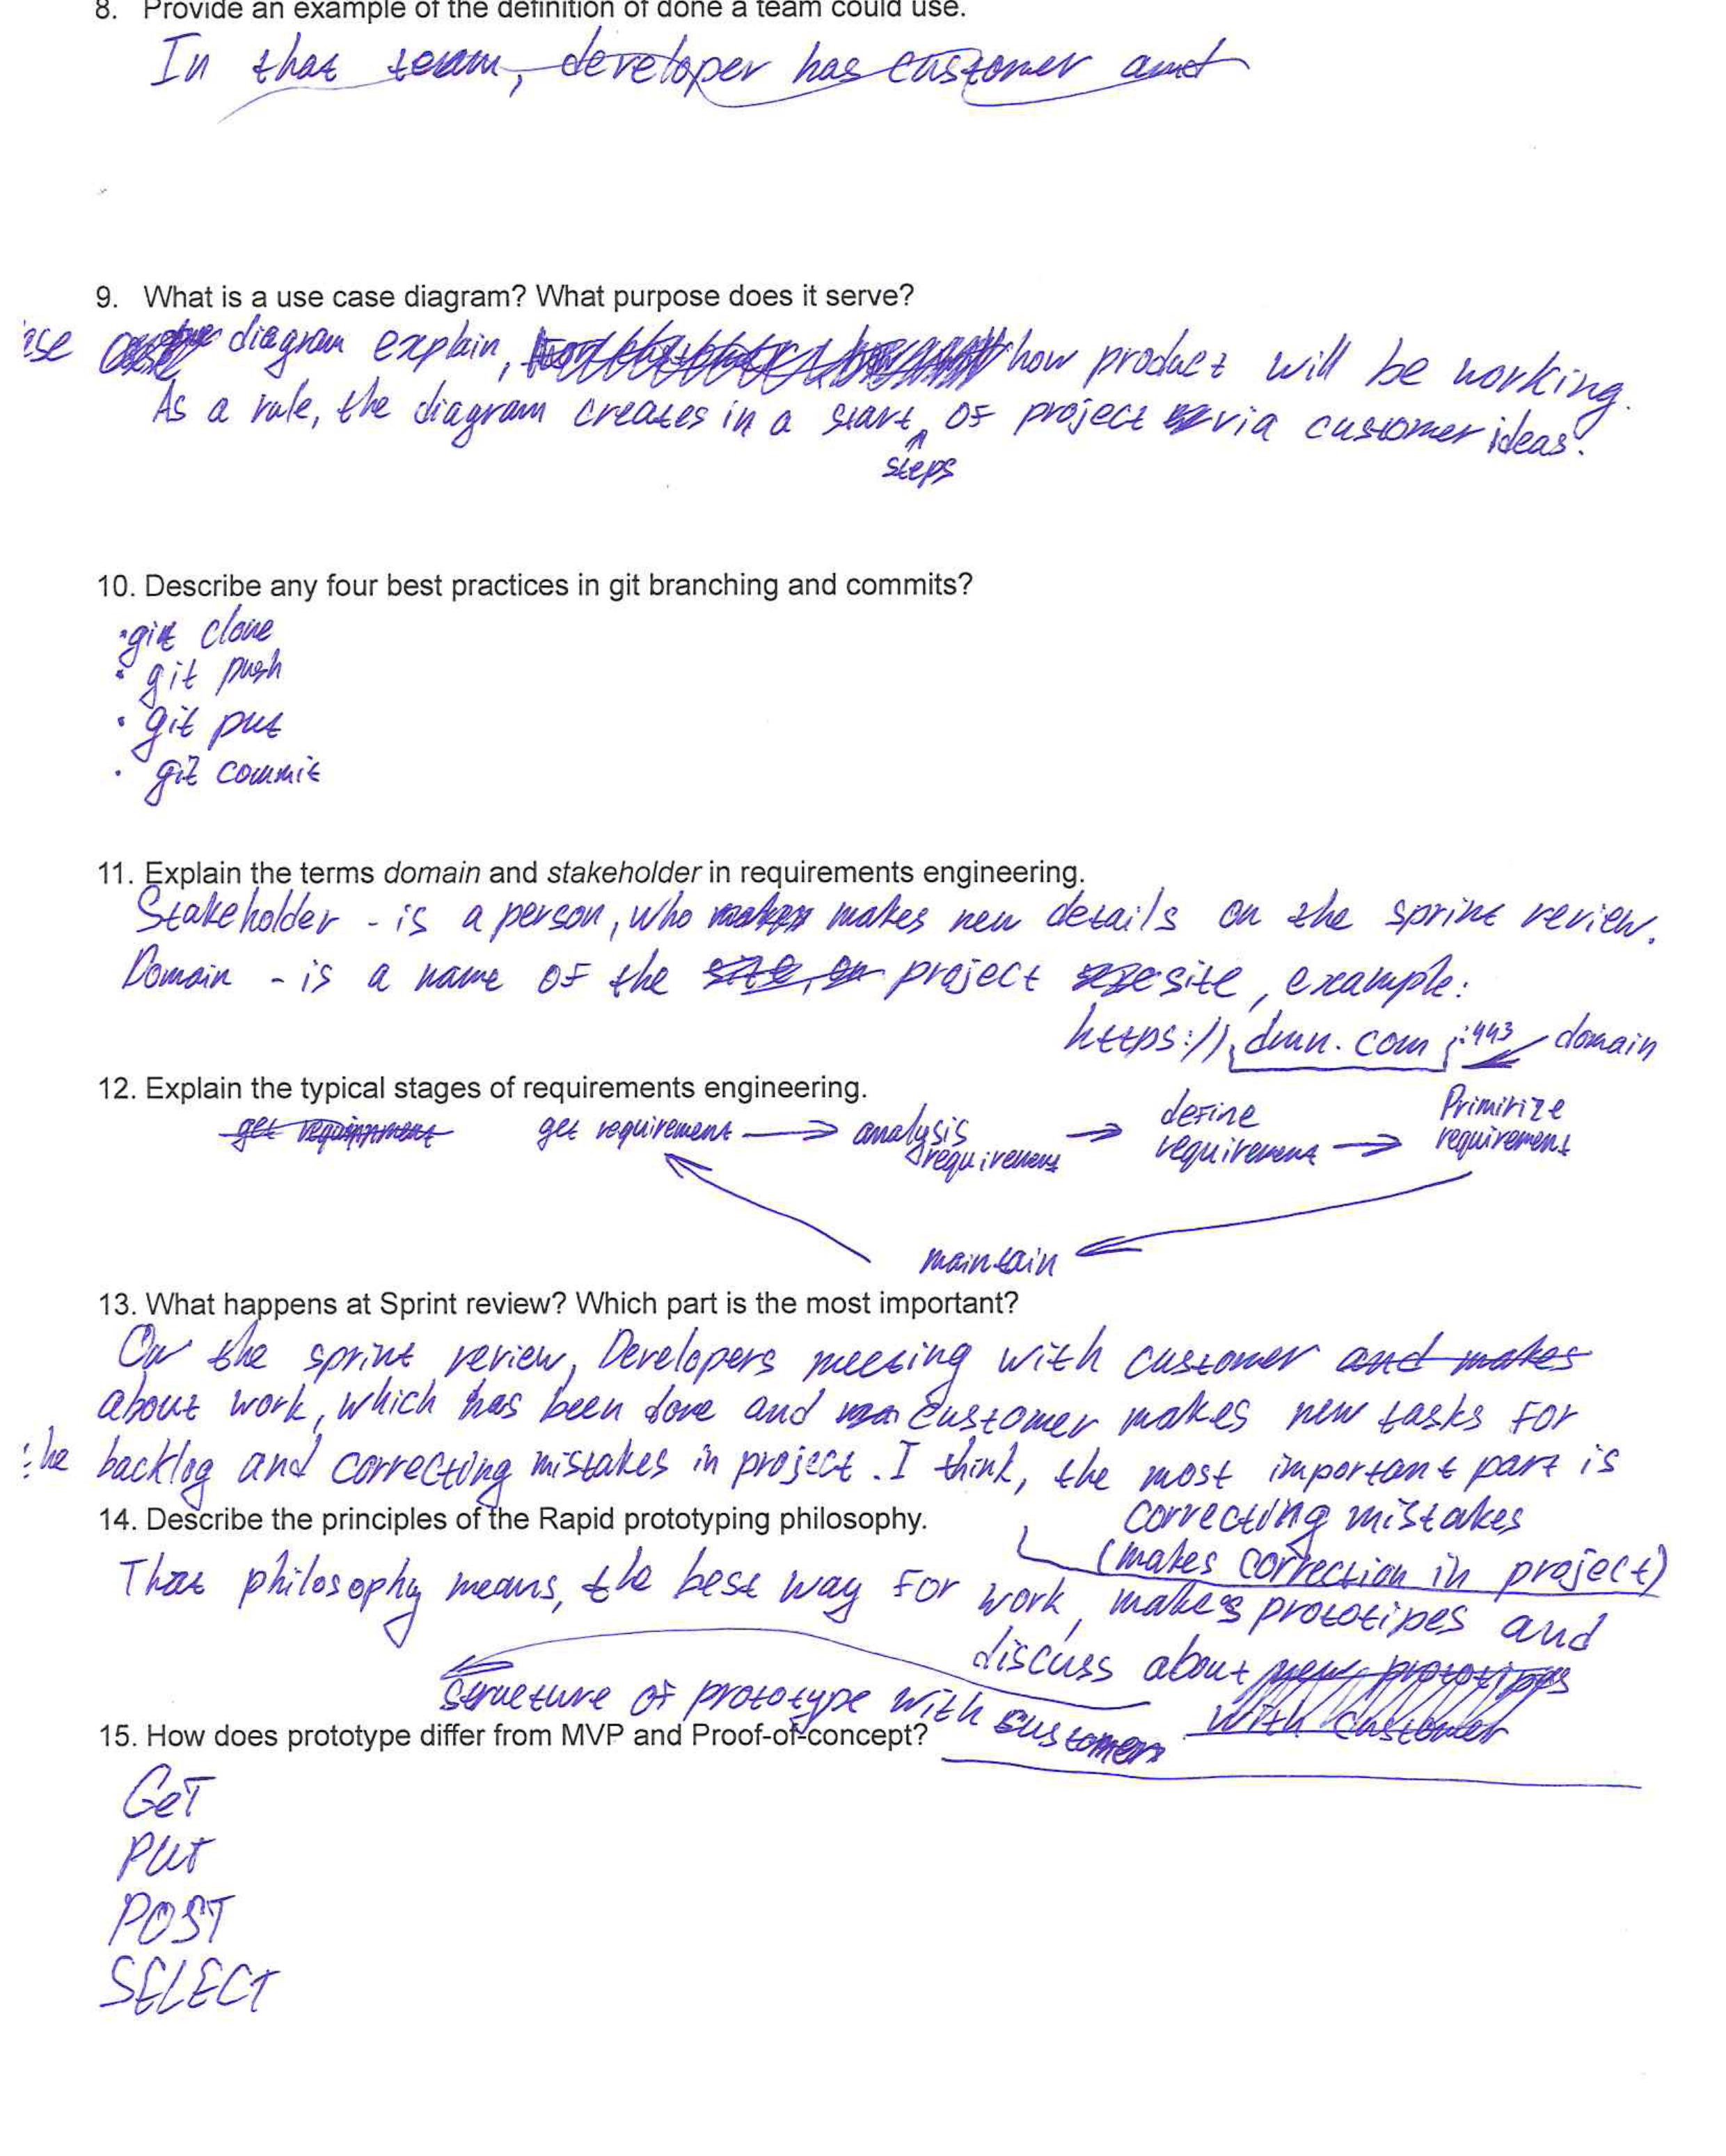 8. Provide an example of the definition of done a team could use.
In that team, developer has customer and
9. What is a use case diagram? What purpose does it serve?
diagram explain, how product will be working.
As a rule, the diagram creates in a start of project via customer ideas.
steps
10. Describe any four best practices in git branching and commits?
• git clone
• git push
• git put
• git commit
11. Explain the terms domain and stakeholder in requirements engineering.
Stakeholder - is a person, who makes new details on the sprint review.
Domain - is a name of the project site, example:
https://dmn.com:443 domain
12. Explain the typical stages of requirements engineering.
get requirement → analysis requirement → define requirement → Primirize requirement
maintain
13. What happens at Sprint review? Which part is the most important?
On the sprint review, Developers meeting with customer and makes
about work, which has been done and customer makes new tasks for
the backlog and correcting mistakes in project. I think, the most important part is
correcting mistakes
(makes correction in project)
14. Describe the principles of the Rapid prototyping philosophy.
That philosophy means, the best way for work, makes prototipes and
discuss about
structure of prototype with customer
15. How does prototype differ from MVP and Proof-of-concept?
GeT
PUT
POST
SELECT